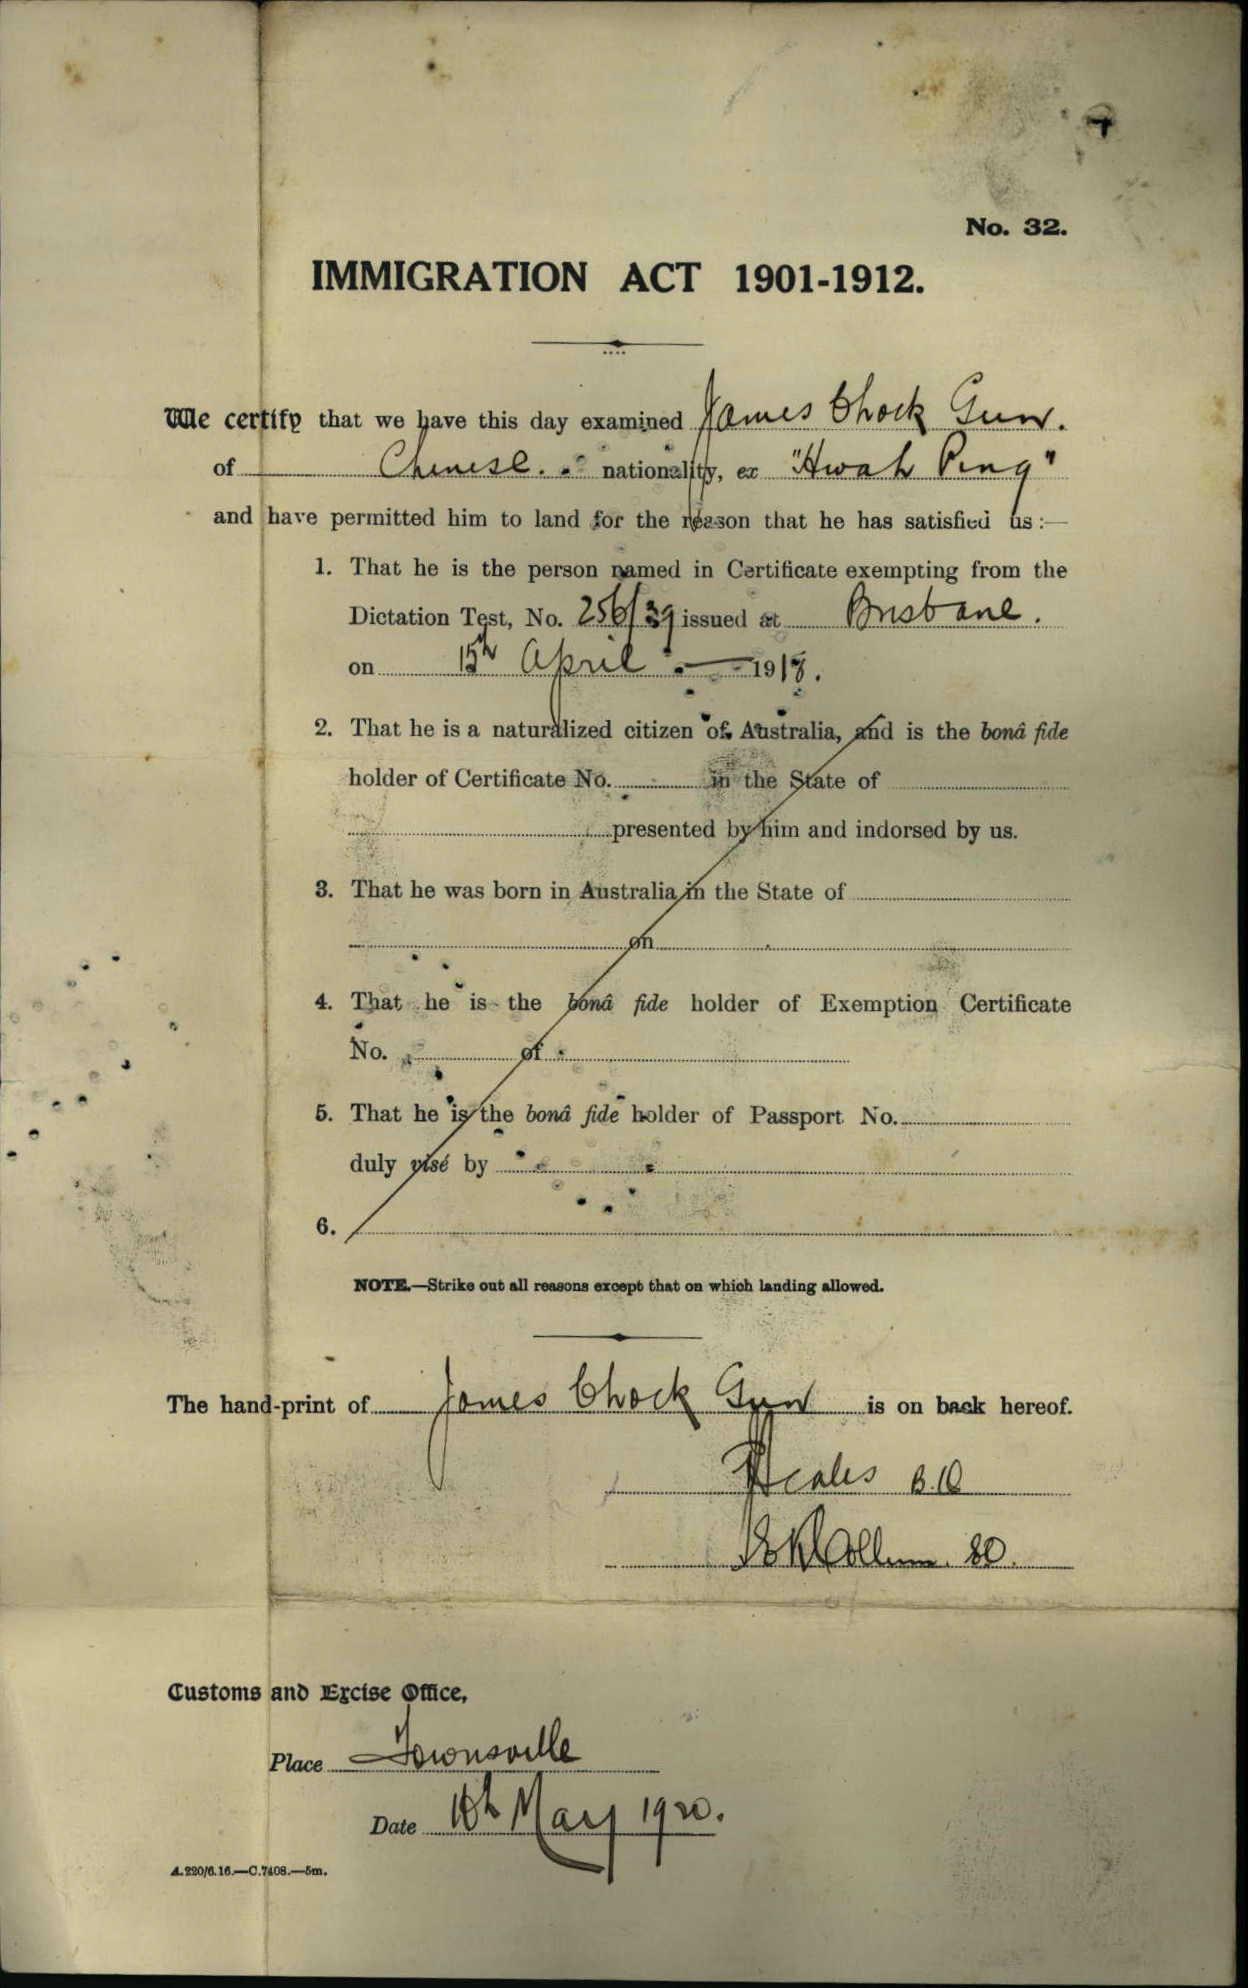 No. 32.
IMMIGRATION ACT 1901-1912.
We certify that we have this day examined James Chock Gun.
of Chinese. nationality, ex "Hwah Ping"
and have permitted him to land for the reason that he has satisfied us:—
1. That he is the person named in Certificate exempting from the
Dictation Test, No. 256/39 issued at Brisbane.
on 15th April — 1918.
2. That he is a naturalized citizen of Australia, and is the bonâ fide
holder of Certificate No. in the State of
presented by him and indorsed by us.
3. That he was born in Australia in the State of
on
4. That he is the bonâ fide holder of Exemption Certificate
No. of
5. That he is the bonâ fide holder of Passport No.
duly visé by
6.
NOTE.—Strike out all reasons except that on which landing allowed.
The hand-print of James Chock Gun is on back hereof.
Customs and Excise Office,
Place Townsville
Date May 1920.
A.220/6.16.—C.7408.—5m.